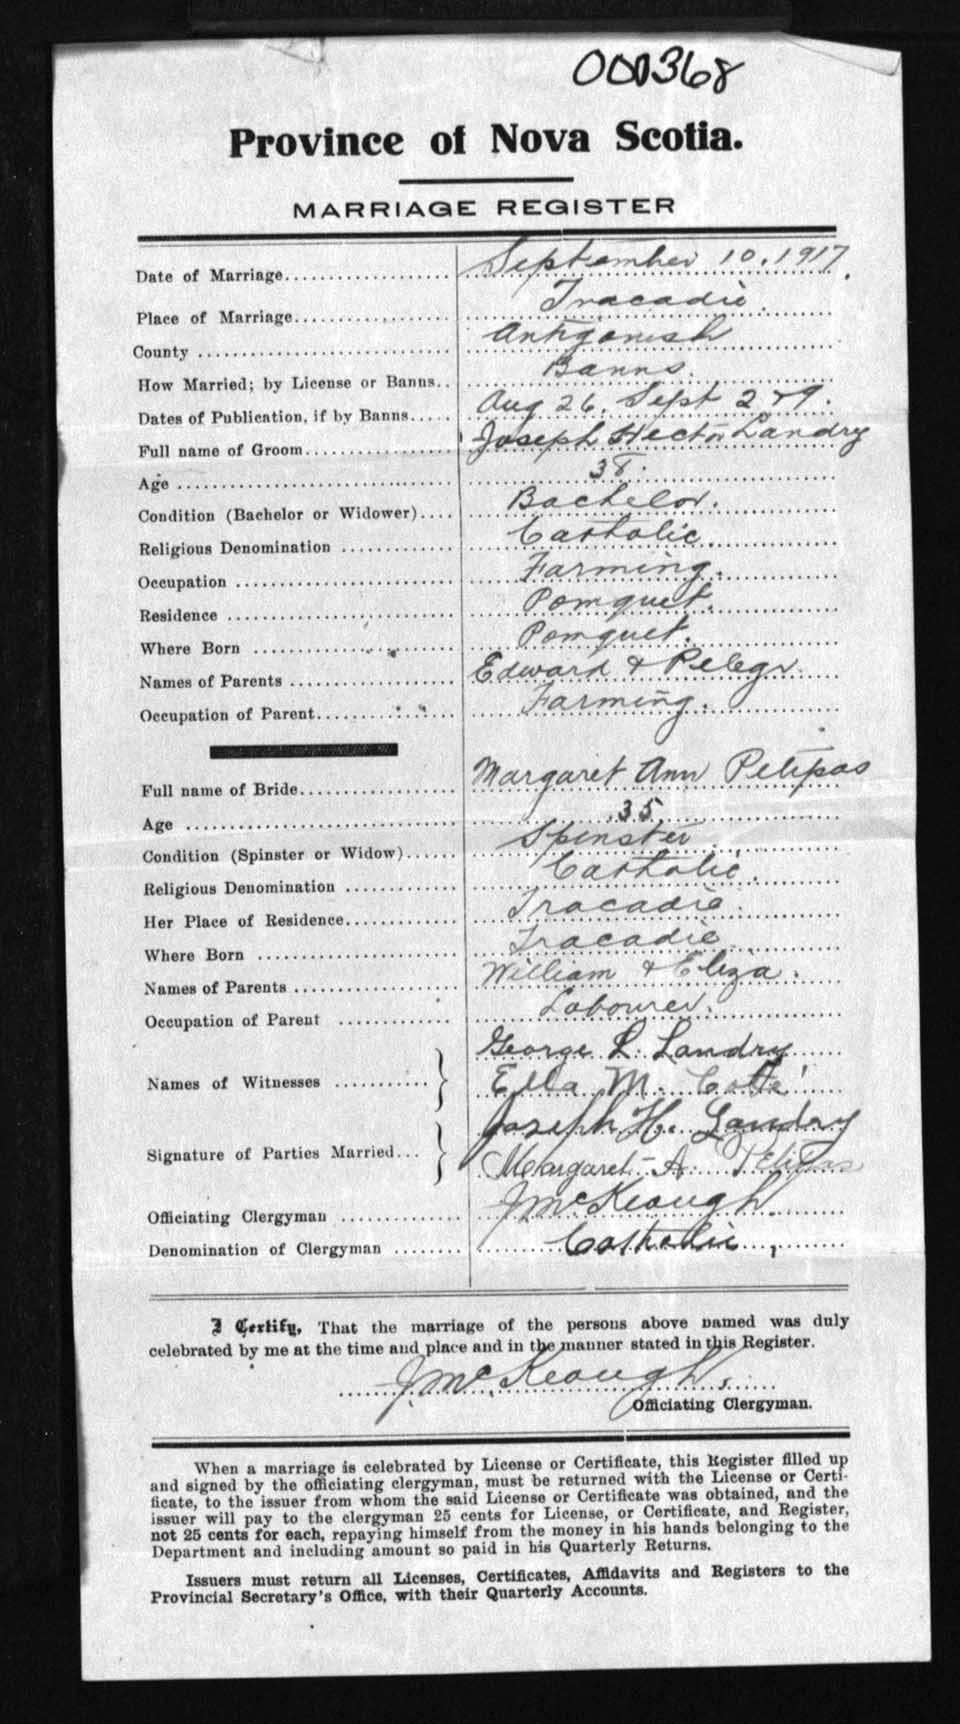 000368
Province of Nova Scotia.
MARRIAGE REGISTER
Date of Marriage.................... September 10, 1917.
Place of Marriage................... Tracadie.
County .............................. Antigonish
How Married; by License or Banns.. Banns.
Dates of Publication, if by Banns..... Aug 26, Sept 2 & 9.
Full name of Groom.................. Joseph Hector Landry
Age ................................. 38.
Condition (Bachelor or Widower).... Bachelor.
Religious Denomination ............. Catholic.
Occupation .......................... Farming.
Residence ........................... Pomquet.
Where Born ......................... Pomquet.
Names of Parents .................... Edward &
Occupation of Parent................. Farming.
Full name of Bride................... Margaret Ann Petipas
Age ................................. 35.
Condition (Spinster or Widow)...... Spinster.
Religious Denomination ............. Catholic.
Her Place of Residence.............. Tracadie.
Where Born ......................... Tracadie.
Names of Parents .................... William & Eliza.
Occupation of Parent ............... Labourer.
George L. Landry
Names of Witnesses ........... Ella M.
Joseph H. Landry
Signature of Parties Married... Margaret A. Petipas
Officiating Clergyman .............. J McKeough.
Denomination of Clergyman ........ Catholic,
I Certify, That the marriage of the persons above named was duly
celebrated by me at the time and place and in the manner stated in this Register.
J. McKeough.
Officiating Clergyman.
When a marriage is celebrated by License or Certificate, this Register filled up
and signed by the officiating clergyman, must be returned with the License or Certi-
ficate, to the issuer from whom the said License or Certificate was obtained, and the
issuer will pay to the clergyman 25 cents for License, or Certificate, and Register,
not 25 cents for each, repaying himself from the money in his hands belonging to the
Department and including amount so paid in his Quarterly Returns.
Issuers must return all Licenses, Certificates, Affidavits and Registers to the
Provincial Secretary's Office, with their Quarterly Accounts.